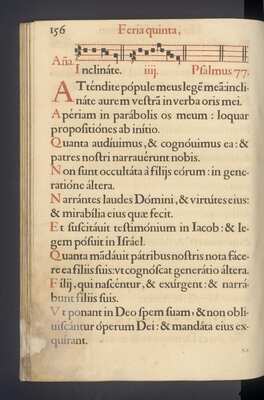 156 Feria quinta,
Aña.
Inclináte. iiij. Psalmus 77.
ATténdite pópule meus legẽ meã: incli-
náte aurem vestrã in verba oris mei.
Apériam in parábolis os meum : loquar
propositiónes ab inítio.
Quanta audíuimus, & cognóuimus ea: &
patres nostri narrauérunt nobis.
Non sunt occultáta à filijs eórum : in gene-
ratióne áltera.
Narrántes laudes Dómini, & virtútes eius:
& mirabília eius quæ fecit.
Et suscitáuit testimónium in Iacob : & le-
gem pósuit in Israël.
Quanta mãdáuit pátribus nostris nota fáce-
re ea filiis suis: vt cognóscat generátio áltera.
Filij, qui nascéntur, & exúrgent : & narrá-
bunt filiis suis.
Vt ponant in Deo spem suam, & non obli-
uiscántur óperum Dei : & mandáta eius ex-
quírant.